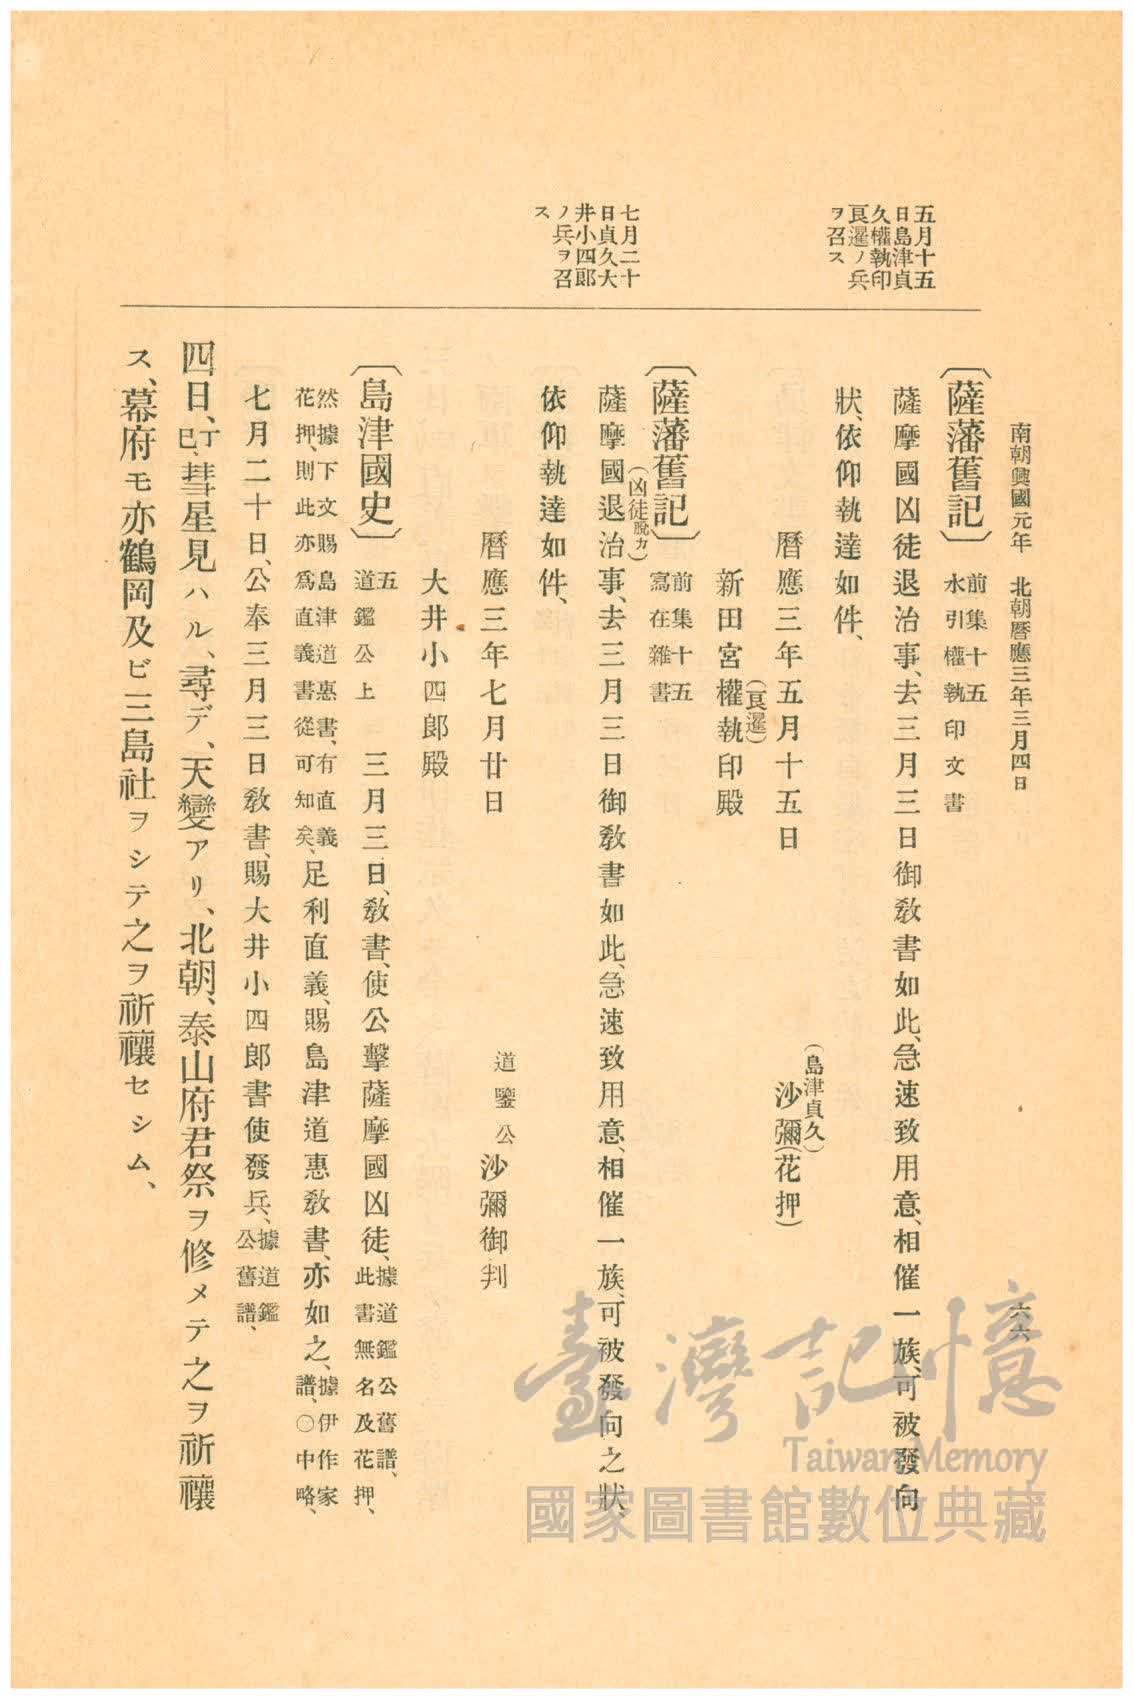 南朝興國元年　北朝曆應三年三月四日
六六
五月十五
日島津貞
久權執印
良暹ノ兵
ヲ召ス
七月二十
日貞久大
井小四郎
ノ兵ヲ召
ス
〔薩藩舊記〕
前集十五
水引權執印文書
薩摩國凶徒退治事、去三月三日御教書如此、急速致用意、相催一族、可被發向
狀、依仰執達如件、
曆應三年五月十五日
(島津貞久)
沙彌(花押)
(良暹)
新田宮權執印殿
〔薩藩舊記〕
前集十五
寫在雜書
(凶徒脫カ)
薩摩國退治事、去三月三日御教書如此、急速致用意、相催一族、可被發向之狀、
依仰執達如件、
曆應三年七月廿日
道鑒公
沙彌御判
大井小四郎殿
〔島津國史〕
五
道鑑公上
三月三日、教書、使公擊薩摩國凶徒、
據道鑑公舊譜、
此書無名及花押、
然據下文賜島津道惠書、有直義
花押、則此亦爲直義書從可知矣、
足利直義、賜島津道惠教書、亦如之、
據伊作家
譜、〇中略、
七月二十日、公奉三月三日教書、賜大井小四郎書使發兵、
據道鑑
公舊譜、
四日、丁巳、彗星見ハル、尋デ、天變アリ、北朝、泰山府君祭ヲ修メテ之ヲ祈禳
ス、幕府モ亦鶴岡及ビ三島社ヲシテ之ヲ祈禳セシム、
臺灣記憶
Taiwan Memory
國家圖書館數位典藏